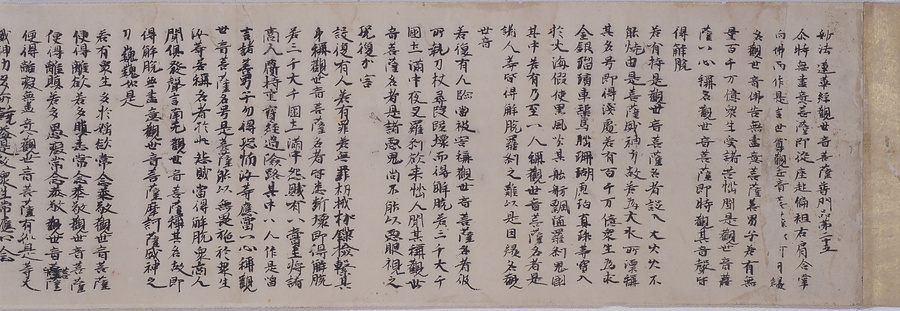 妙法蓮華經觀世音菩薩普門品第二五
尒時無盡意菩薩即從座起偏袒右肩合掌
向佛而作是言世尊觀世音菩薩以何因緣
名觀世音佛告無盡意菩薩善男子若有無
量百千万億衆生受諸苦惱聞是觀世音菩
薩一心稱名觀世音菩薩即時觀其音聲皆
得解脫
若有持是觀世音菩薩名者設入大火火不
能燒由是菩薩威神力故若為大水所漂稱
其名号即得淺處若有百千万億衆生為求
金銀瑠璃車璖馬瑙珊瑚虎珀真珠等寶入
於大海假使黑風吹其舩舫飄墮羅剎鬼國
其中若有乃至一人稱觀世音菩薩名者是
諸人等皆得解脫羅剎之難以是因緣名觀
世音
若復有人臨當被害稱觀世音菩薩名者彼
所執刀杖尋段段壞而得解脫若三千大千
國土滿中夜叉羅剎欲來惱人聞其稱觀世
音菩薩名者是諸惡鬼尚不能以惡眼視之
況復加害
設復有人若有罪若無罪杻械枷鎖檢繫其
身稱觀世音菩薩名者皆悉斷壞即得解脫
若三千大千國土滿中怨賊有一商主將諸
商人齎持重寶經過嶮路其中一人作是唱
言諸善男子勿得恐怖汝等應當一心稱觀
世音菩薩名号是菩薩能以無畏施於衆生
汝等若稱名者於此怨賊當得解脫衆商人
聞俱發聲言南無觀世音菩薩稱其名故即
得解脫無盡意觀世音菩薩摩訶薩威神之
力巍巍如是
若有衆生多於婬欲常念恭敬觀世音菩薩
便得離欲若多瞋恚常念恭敬觀世音菩薩
便得離瞋若多愚癡常念恭敬觀世音菩薩
便得離癡無盡意觀世音菩薩有如是等大
威神力多所饒益是故衆生常應心念